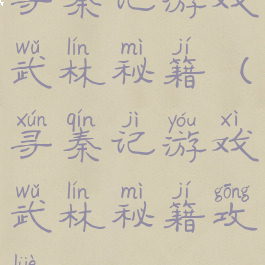 寻秦记游戏
wǔ lín mì jí
武林秘籍（
xún qín jì yóu xì
寻秦记游戏
wǔ lín mì jí gōng
武林秘籍攻
lüè